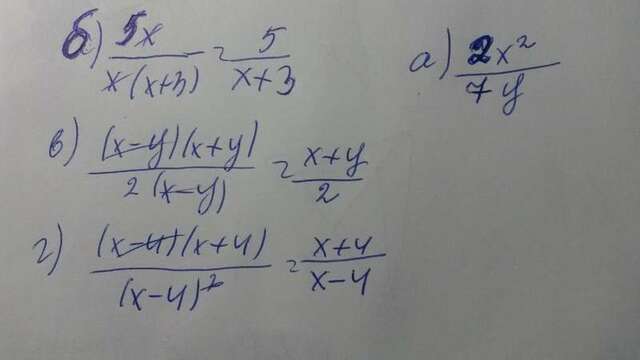 б) 5x / x(x+3) = 5 / x+3
а) 2x² / 7y
в) (x-y)(x+y) / 2(x-y) = x+y / 2
г) (x-4)(x+4) / (x-4)² = x+4 / x-4